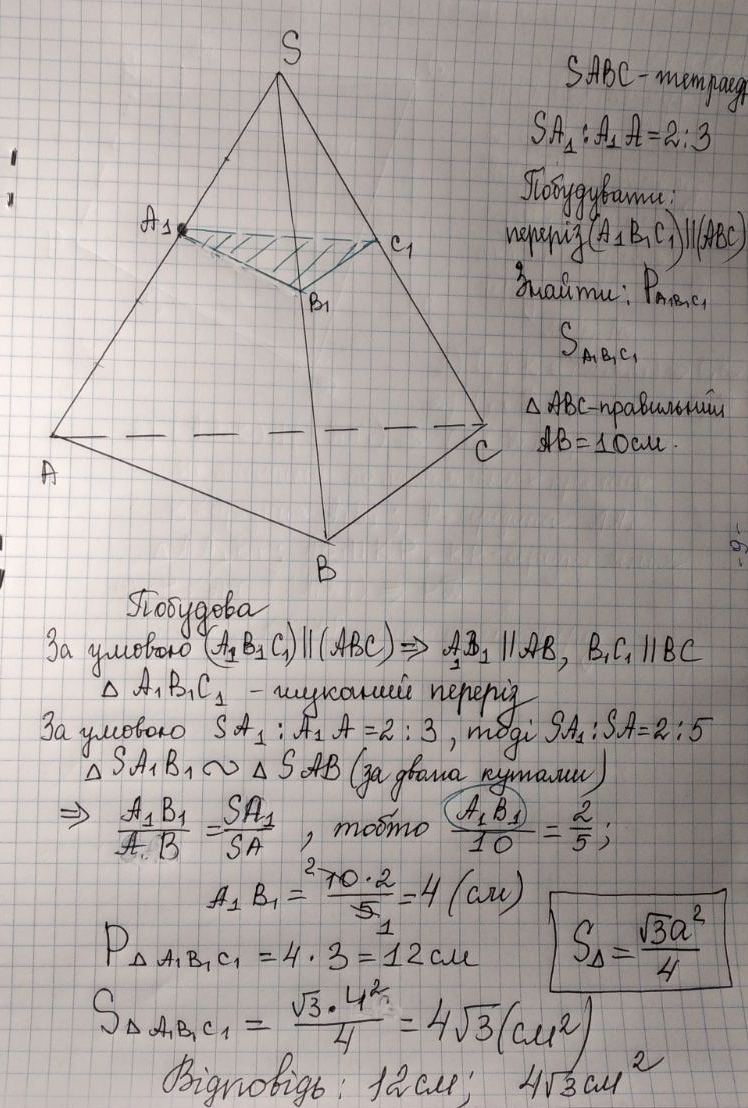 S
SABC - тетраед
SA₁ : A₁A = 2 : 3
Побудувати:
переріз (A₁B₁C₁) || (ABC)
Знайти: P A₁B₁C₁
S A₁B₁C₁
Δ ABC - правильний
AB = 10 см.
A₁
C₁
B₁
A
C
B
-9-
Побудова
За умовою (A₁B₁C₁) || (ABC) ⇒ A₁B₁ || AB, B₁C₁ || BC
Δ A₁B₁C₁ - шуканий переріз
За умовою SA₁ : A₁A = 2 : 3, тоді SA₁ : SA = 2 : 5
Δ SA₁B₁ ∾ Δ SAB (за двома кутами)
⇒ A₁B₁/A B = SA₁/SA , тобто A₁B₁/10 = 2/5 ;
A₁B₁ = ²10 · 2/5₁ = 4 (см)
P Δ A₁B₁C₁ = 4 · 3 = 12 см
S Δ = √3a²/4
S Δ A₁B₁C₁ = √3 · 4²/4 = 4√3 (см²)
Відповідь: 12 см; 4√3 см²